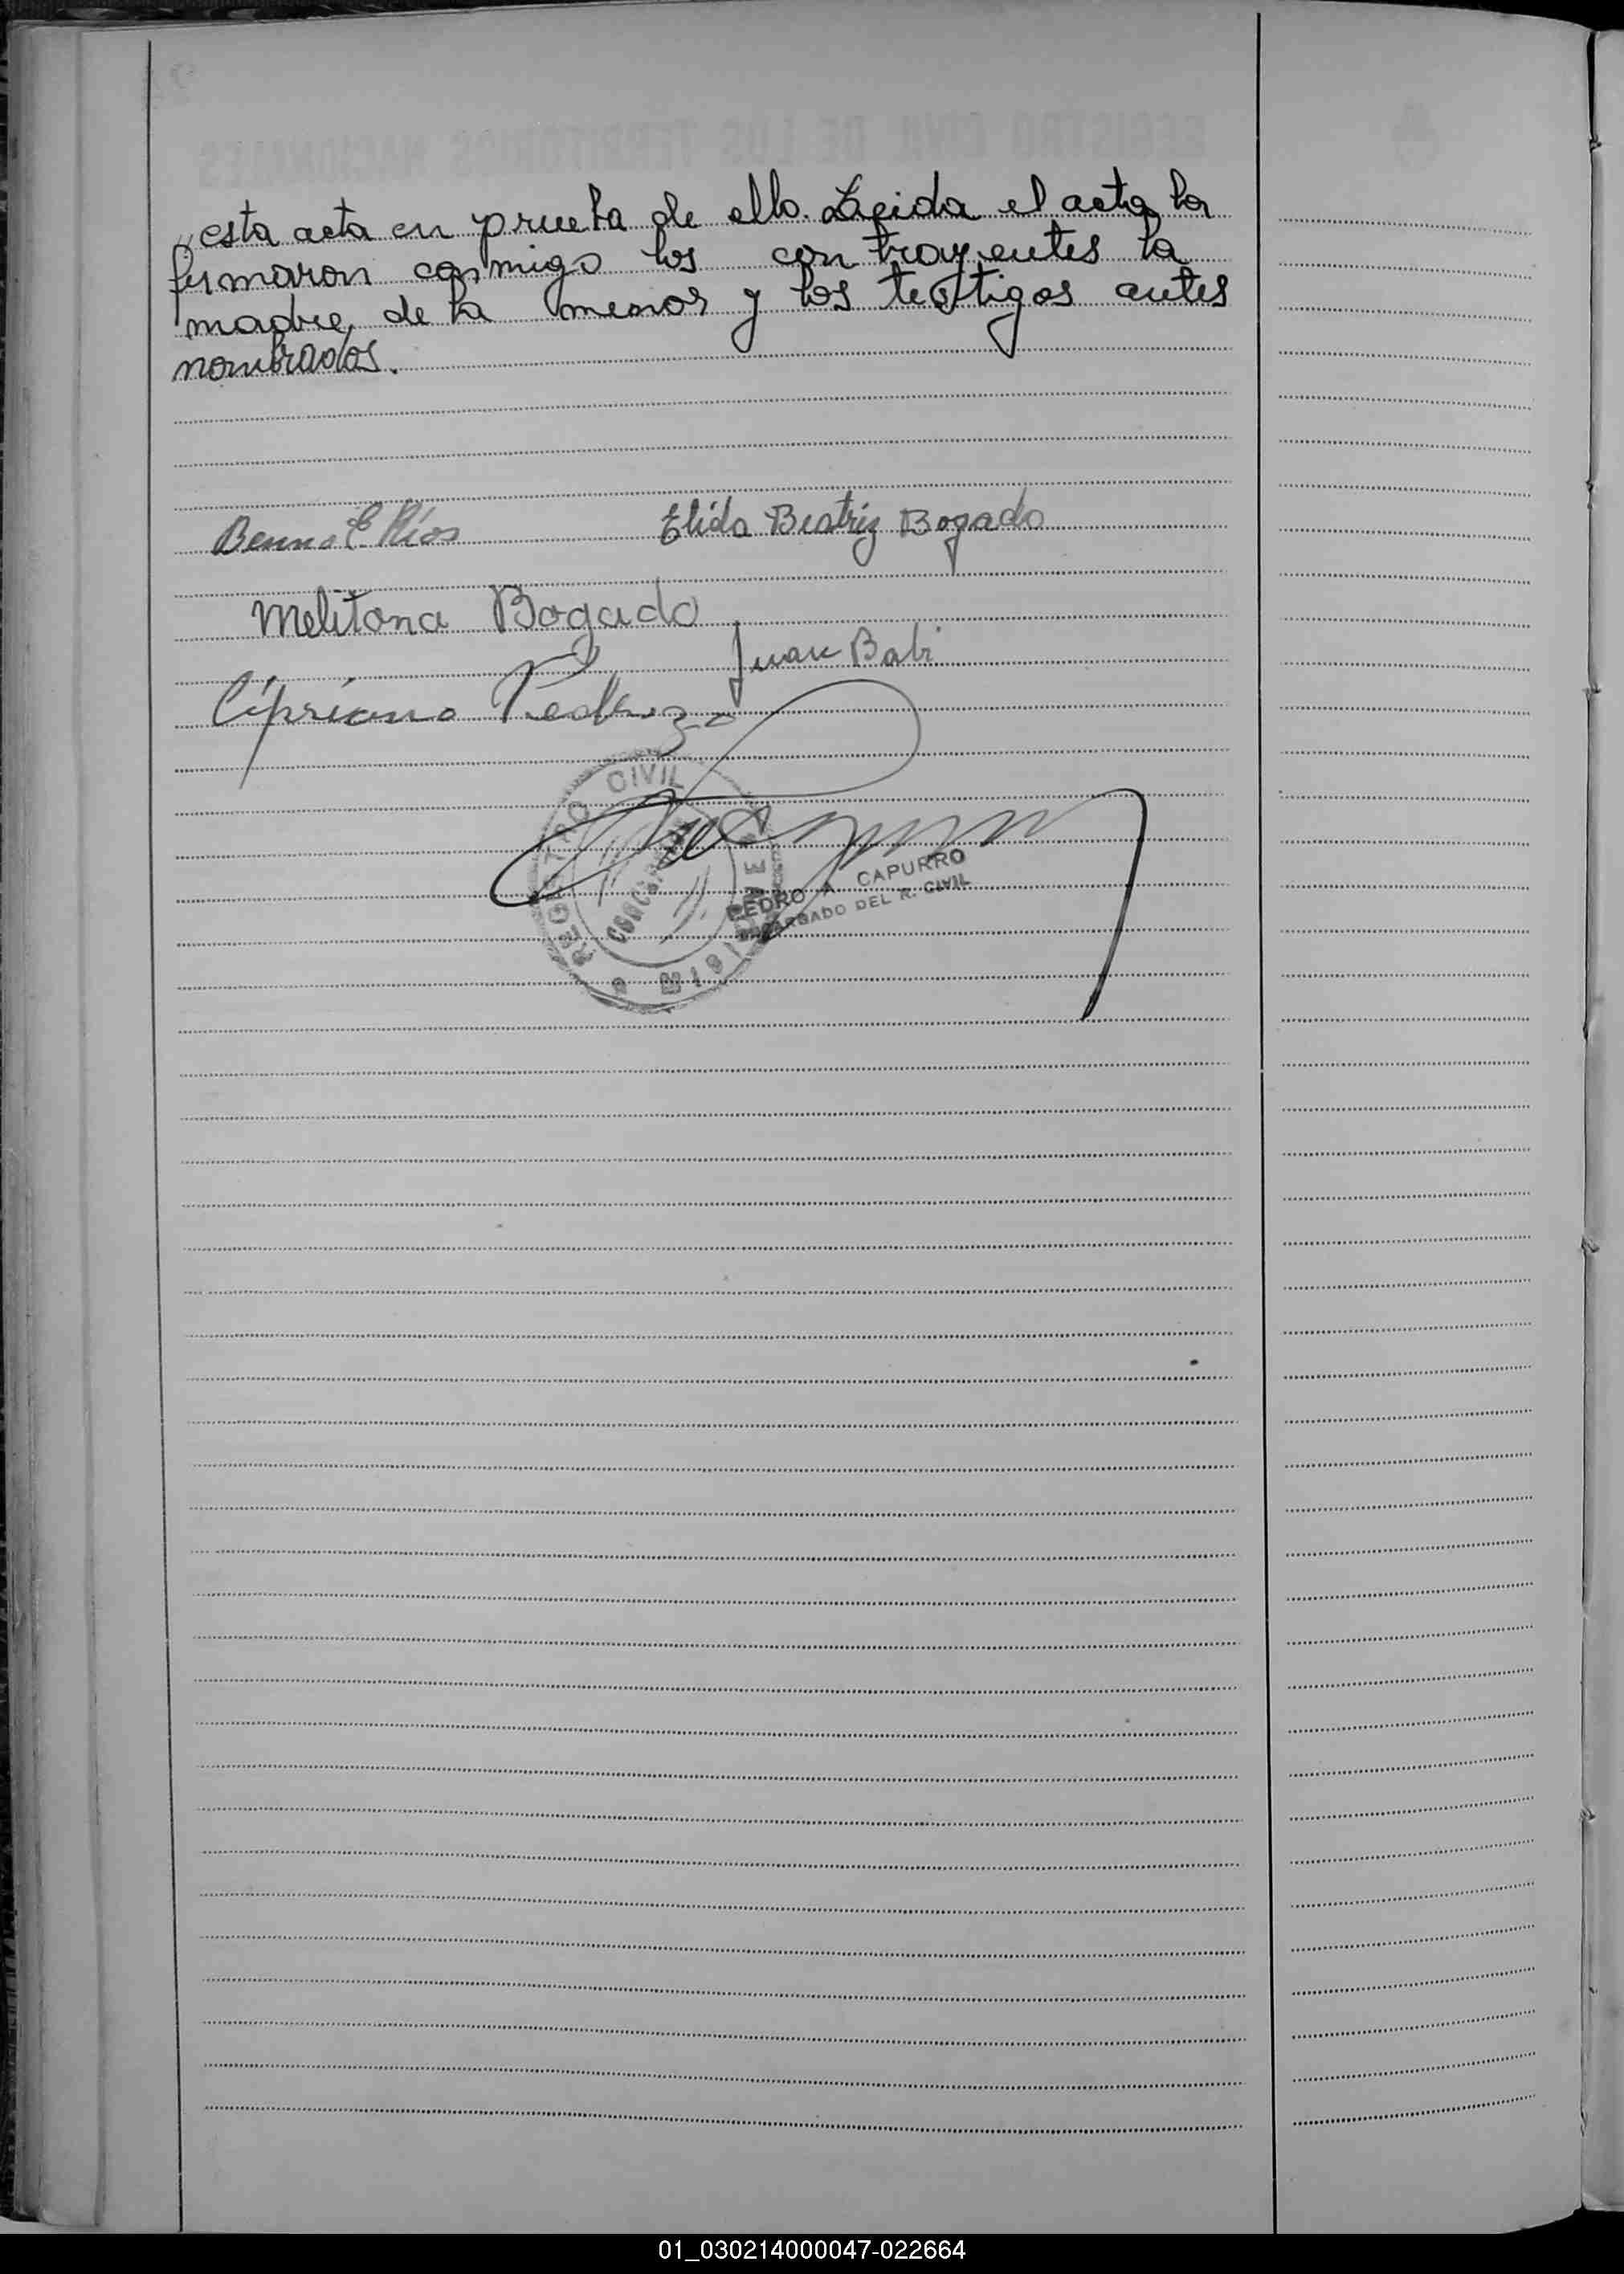 esta acta en prueba de ello. Leida el acta la
firmaron conmigo los contrayentes la
madre, de la menor y los testigos antes
nombrados.
Benno E. Ríos
Elida Beatriz Bogado
Melitona Bogado
Juan Babi
Cipriano Pedrozo
REGISTRO CIVIL
PEDRO A CAPURRO
ENCARGADO DEL R. CIVIL
01_030214000047-022664